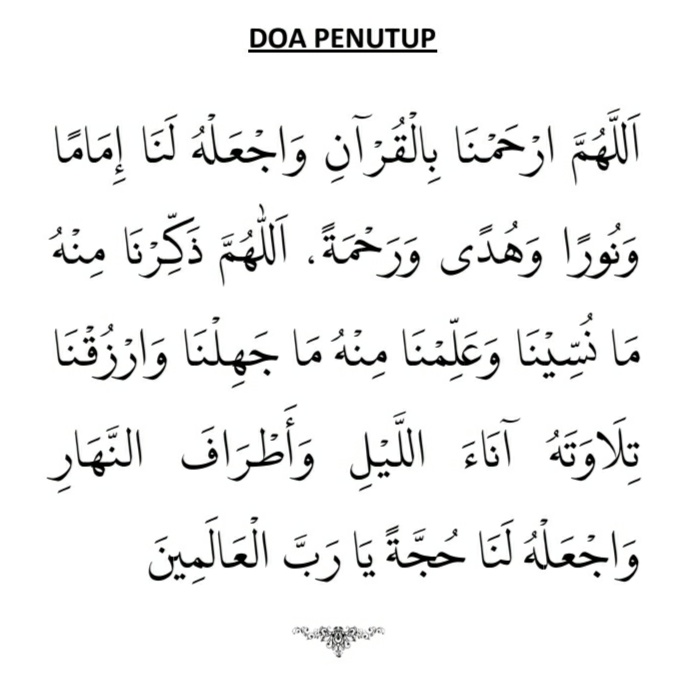 DOA PENUTUP
اَللَّهُمَّ ارْحَمْنَا بِالْقُرْآنِ وَاجْعَلْهُ لَنَا إِمَامًا
وَنُورًا وَهُدًى وَرَحْمَةً، اَللّٰهُمَّ ذَكِّرْنَا مِنْهُ
مَا نُسِّيْنَا وَعَلِّمْنَا مِنْهُ مَا جَهِلْنَا وَارْزُقْنَا
تِلَاوَتَهُ آنَاءَ اللَّيْلِ وَأَطْرَافَ النَّهَارِ
وَاجْعَلْهُ لَنَا حُجَّةً يَا رَبَّ الْعَالَمِينَ